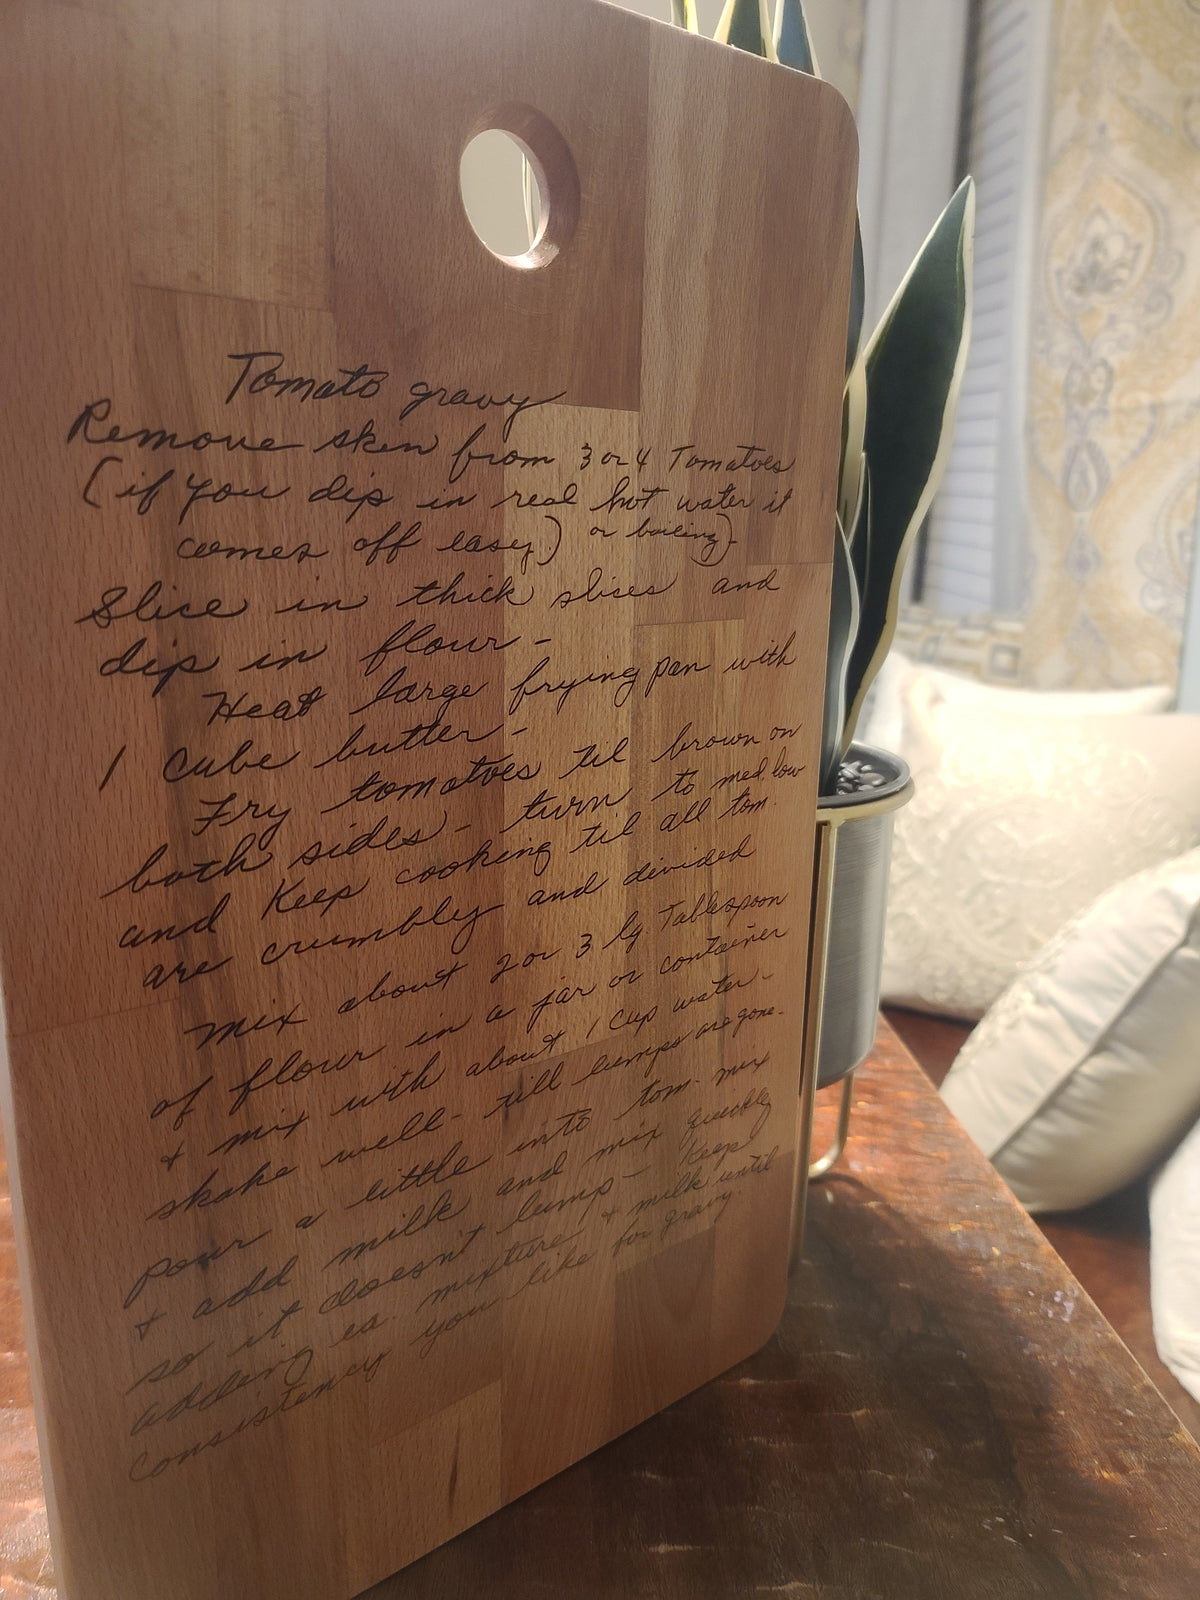 Tomato gravy
Remove skin from 3 or 4 Tomatoes
(if you dip in real hot water it
comes off easy) or boiling)-
Slice in thick slises and
dip in flour -
Heat large frying pan with
1 cube butter -
Fry tomatoes til brown on
both sides - turn to med. low
and Keep cooking til all tom.
are crumbly and divided
mix about 2 or 3 lg. Tablespoon
of flour in a jar or container
+ mix with about 1 cup water -
shake well - till lumps are gone.
pour a little into tom. mix
+ add milk and mix quickly
so it doesn't lump - Keep
adding ea. mixture + milk until
consistency you like for gravy.